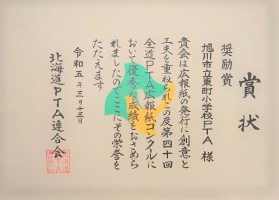 賞状
奨励賞
旭川市立東町小学校PTA 様
貴会は広報紙の発行に創意と
工夫を重ねられこの度第四十回
全道PTA広報紙コンクールに
おいて優秀な成績をおさめら
れましたのでここにその栄誉を
たたえます
令和五年三月十三日
北海道PTA連合会